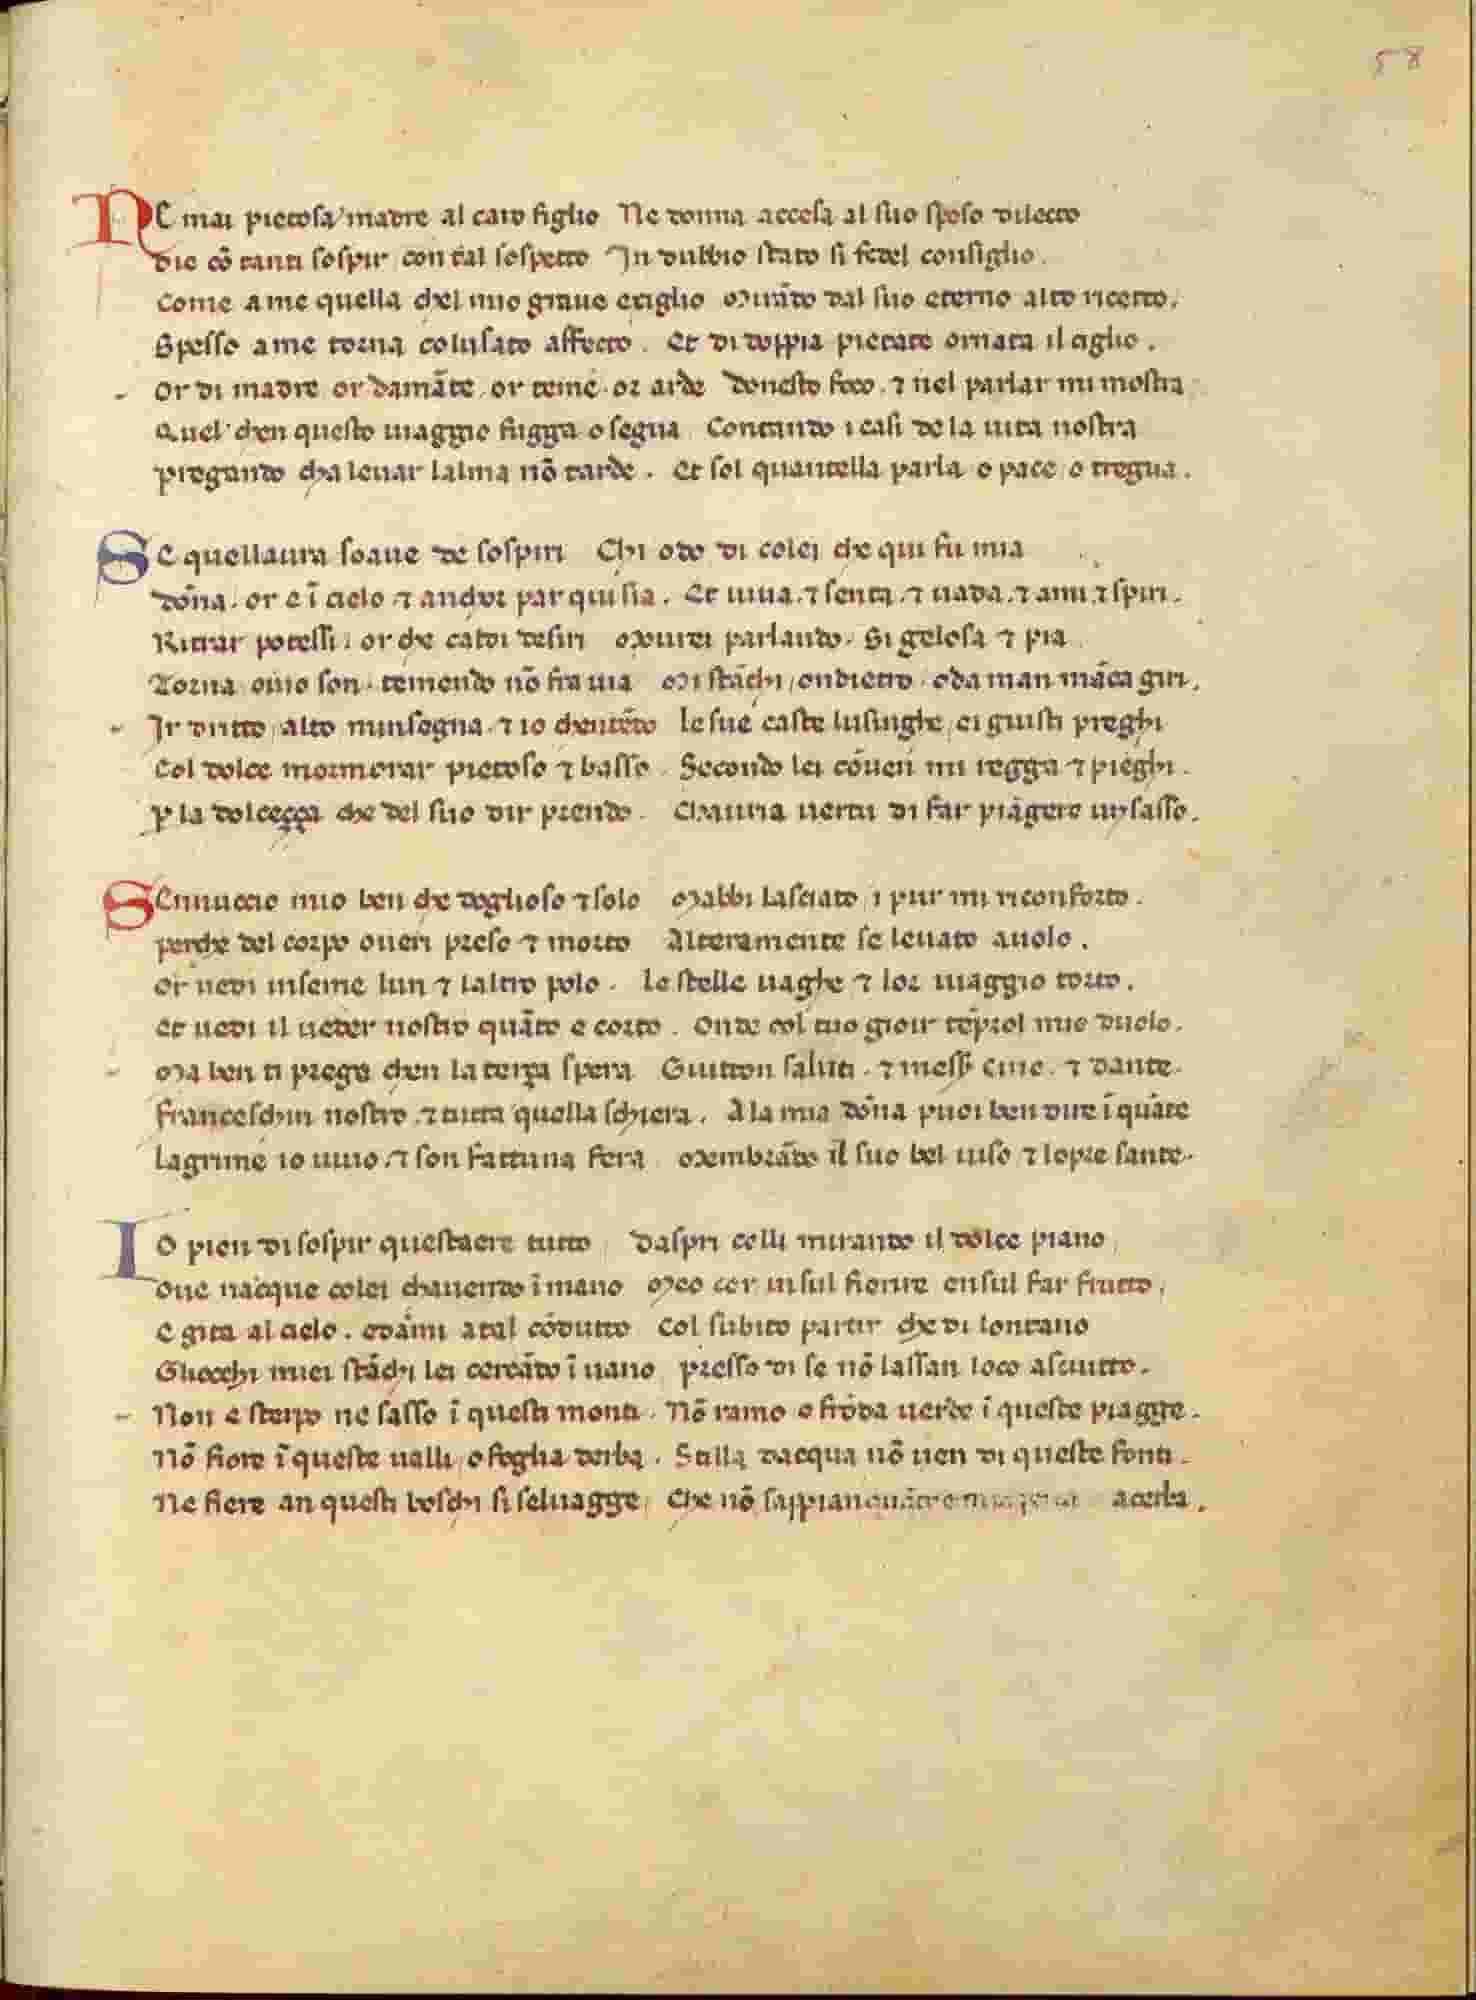 58
NE mai pietosa madre al caro figlio Ne donna accesa al suo sposo dilecto
Die cō tanti sospir con tal sospetto In dubbio stato si fedel consiglio.
Come a me quella chel mio graue exiglio Mirādo dal suo eterno alto ricetto.
Spesso a me torna colusato affecto. Et di doppia pietate ornata il ciglio.
Or di madre or damāte. or teme. or arde Donesto foco. ⁊ nel parlar mi mostra
Quel chen questo uiaggio fugga o segua Contando i casi de la uita nostra
Pregando cha leuar lalma nō tarde. Et sol quantella parla o pace o tregua.
SE quellaura soaue de sospiri Chi odo di colei che qui fu mia
Dōna. or e ī cielo. ⁊ anchor par qui sia. Et uiua. ⁊ senta. ⁊ uada. ⁊ ami. ⁊ spiri.
Ritrar potessi. or che caldi desiri Mourei parlando. Si gelosa ⁊ pia
Torna ouio son. temendo nō fra uia Mi stāchi. ondietro. o da man māca giri.
Ir dritto alto minsegna. ⁊ io chentēdo le sue caste lusinghe. ei giusti preghi
Col dolce mormorar pietoso ⁊ basso. Secondo lei cōuen mi regga ⁊ pieghi.
ꝑ la dolceçça che del suo dir prendo. Chauria uertu di far piāgere un sasso.
SEnnuccio mio ben che doglioso ⁊ solo Mabbi lasciato i pur mi riconforto.
Perche del corpo oueri preso ⁊ morto Alteramente se leuato a uolo.
Or uedi inseme lun ⁊ laltro polo. le stelle uaghe ⁊ lor uiaggio torto.
Et uedi il ueder nostro quāto e corto. Onde col tuo gioir tēprol mio duolo.
Ma ben ti prego chen la terza spera Guitton saluti. ⁊ mess̄ Cino. ⁊ Dante.
Franceschin nostro. ⁊ tutta quella schiera. A la mia dōna puoi ben dire ī quāte
Lagrime io uiuo. ⁊ son fattuna fera Membrādo il suo bel uiso ⁊ lopre sante.
IO pien di sospir questaere tutto Daspri colli mirando il dolce piano
Oue nacque colei chauendo ī mano Meo cor insul fiorire ensul far frutto.
E gita al cielo. ⁊ āmi a tal cōdutto Col subito partir che di lontano
Gliocchi miei stāchi lei cercādo ī uano presso di se nō lassan loco asciutto.
Non e sterpo ne sasso ī questi monti. Nō ramo o frōda uerde ī queste piagge.
Nō fiore ī queste ualli o foglia derba. Stilla dacqua nō uen di queste fonti.
Ne fiere an questi boschi si seluagge Che nō sappian quāto e mia pena acerba.